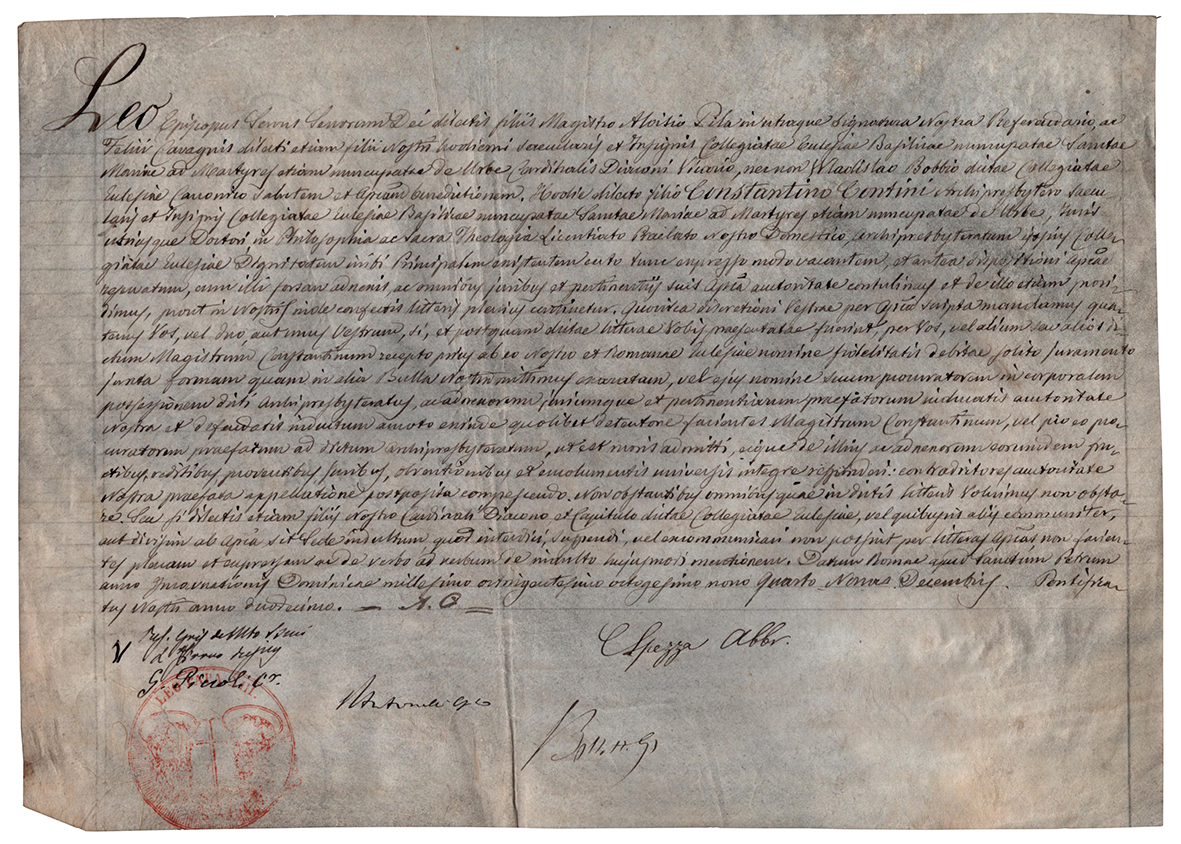 Leo
Episcopus Servus Servorum Dei dilectis filiis Magistro Aloisio Pila in utraque Signatura Nostra Referendario, ac
Felici Cavagnis dilecti etiam filii Nostri hodierni Saecularis et Insignis Collegiatae Eulesiae Basilicae nuncupatae Sanctae
Mariae ad Martyres etiam nuncupatae de Urbe Cardinalis Diaconi Vicario, nec non Vladislao Bobbio dictae Collegiatae
Eulesiae Canonico Salutem et Apĩcam Benedictionem. Hodie dilecto filio Constantino Contini Archipresbytero Saecu-
laris et Insignis Collegiatae Eulesiae Basilicae nuncupatae Sanctae Mariae ad Martyres etiam nuncupatae de Urbe, Juris
utriusque Doctori, in Philosophia ac Sacra Theologia Licentiato Praelato Nostro Domestico, archipresbyteratum ipsius Colle-
giatae Eulesiae Dignitatem inibi Principalem existentem certo tunc expresso modo vacantem, et antea dispositioni apĩcae
reservatum, cum illi forsan adnexis, ac omnibus juribus et pertinentiis suis Apĩca auctoritate contulimus et de illo etiam provi-
dimus, prout in Nostris inde confectis litteris plenius continetur. Quocirca discretioni Vestrae per Apĩca scripta mandamus qua-
tenus Vos, vel duo, aut unus Vestrum, si, et postquam dictae litterae Vobis praesentatae fuerint, per Vos, vel alium seu alios di-
ctum Magistrum Constantinum recepto prius ab eo Nostro et Romanae Eulesiae nomine fidelitatis debitae solito juramento
juxta formam quam in alia Bulla Nostra mittimus exaratam, vel ejus nomine suum procuratorem in corporalem
possessionem dicti archipresbyteratus, ac adnexorum, juriumque et pertinentiarum praefatorum inducatis auctoritate
Nostra et defendatis inductum amoto exinde quolibet detentore facientes Magistrum Constantinum, vel pro eo pro-
curatorem praefatum ad dictum archipresbyteratum, ut est moris admitti, eique de illius ac adnexorum eorumdem fru-
ctibus, redditibus, proventibus, juribus, obventionibus et emolumentis universis integre responderi: contradictores auctoritate
Nostra praefata appellatione postposita compescendo. Non obstantibus omnibus quae in dictis litteris Volumus non obsta-
re. Seu si dilectis etiam filiis Nostro Cardinali Diacono et Capitulo dictae Collegiatae Eulesiae, vel quibusvis aliis communiter,
aut divisim ab Apĩca sit Sede indultum quod interdici, suspendi, vel excommunicari non possint per litteras Apĩcas non facien-
tes plenam et expressam ac de verbo ad verbum de indulto hujusmodi mentionem. Datum Romae apud Sanctum Petrum
anno Incarnationis Dominicae millesimo octingentesimo octogesimo nono Quarto Nonas Decembris. Pontifica-
tus Nostri anno duodecimo. — A. C =
C Spezza Abbr.
LEO